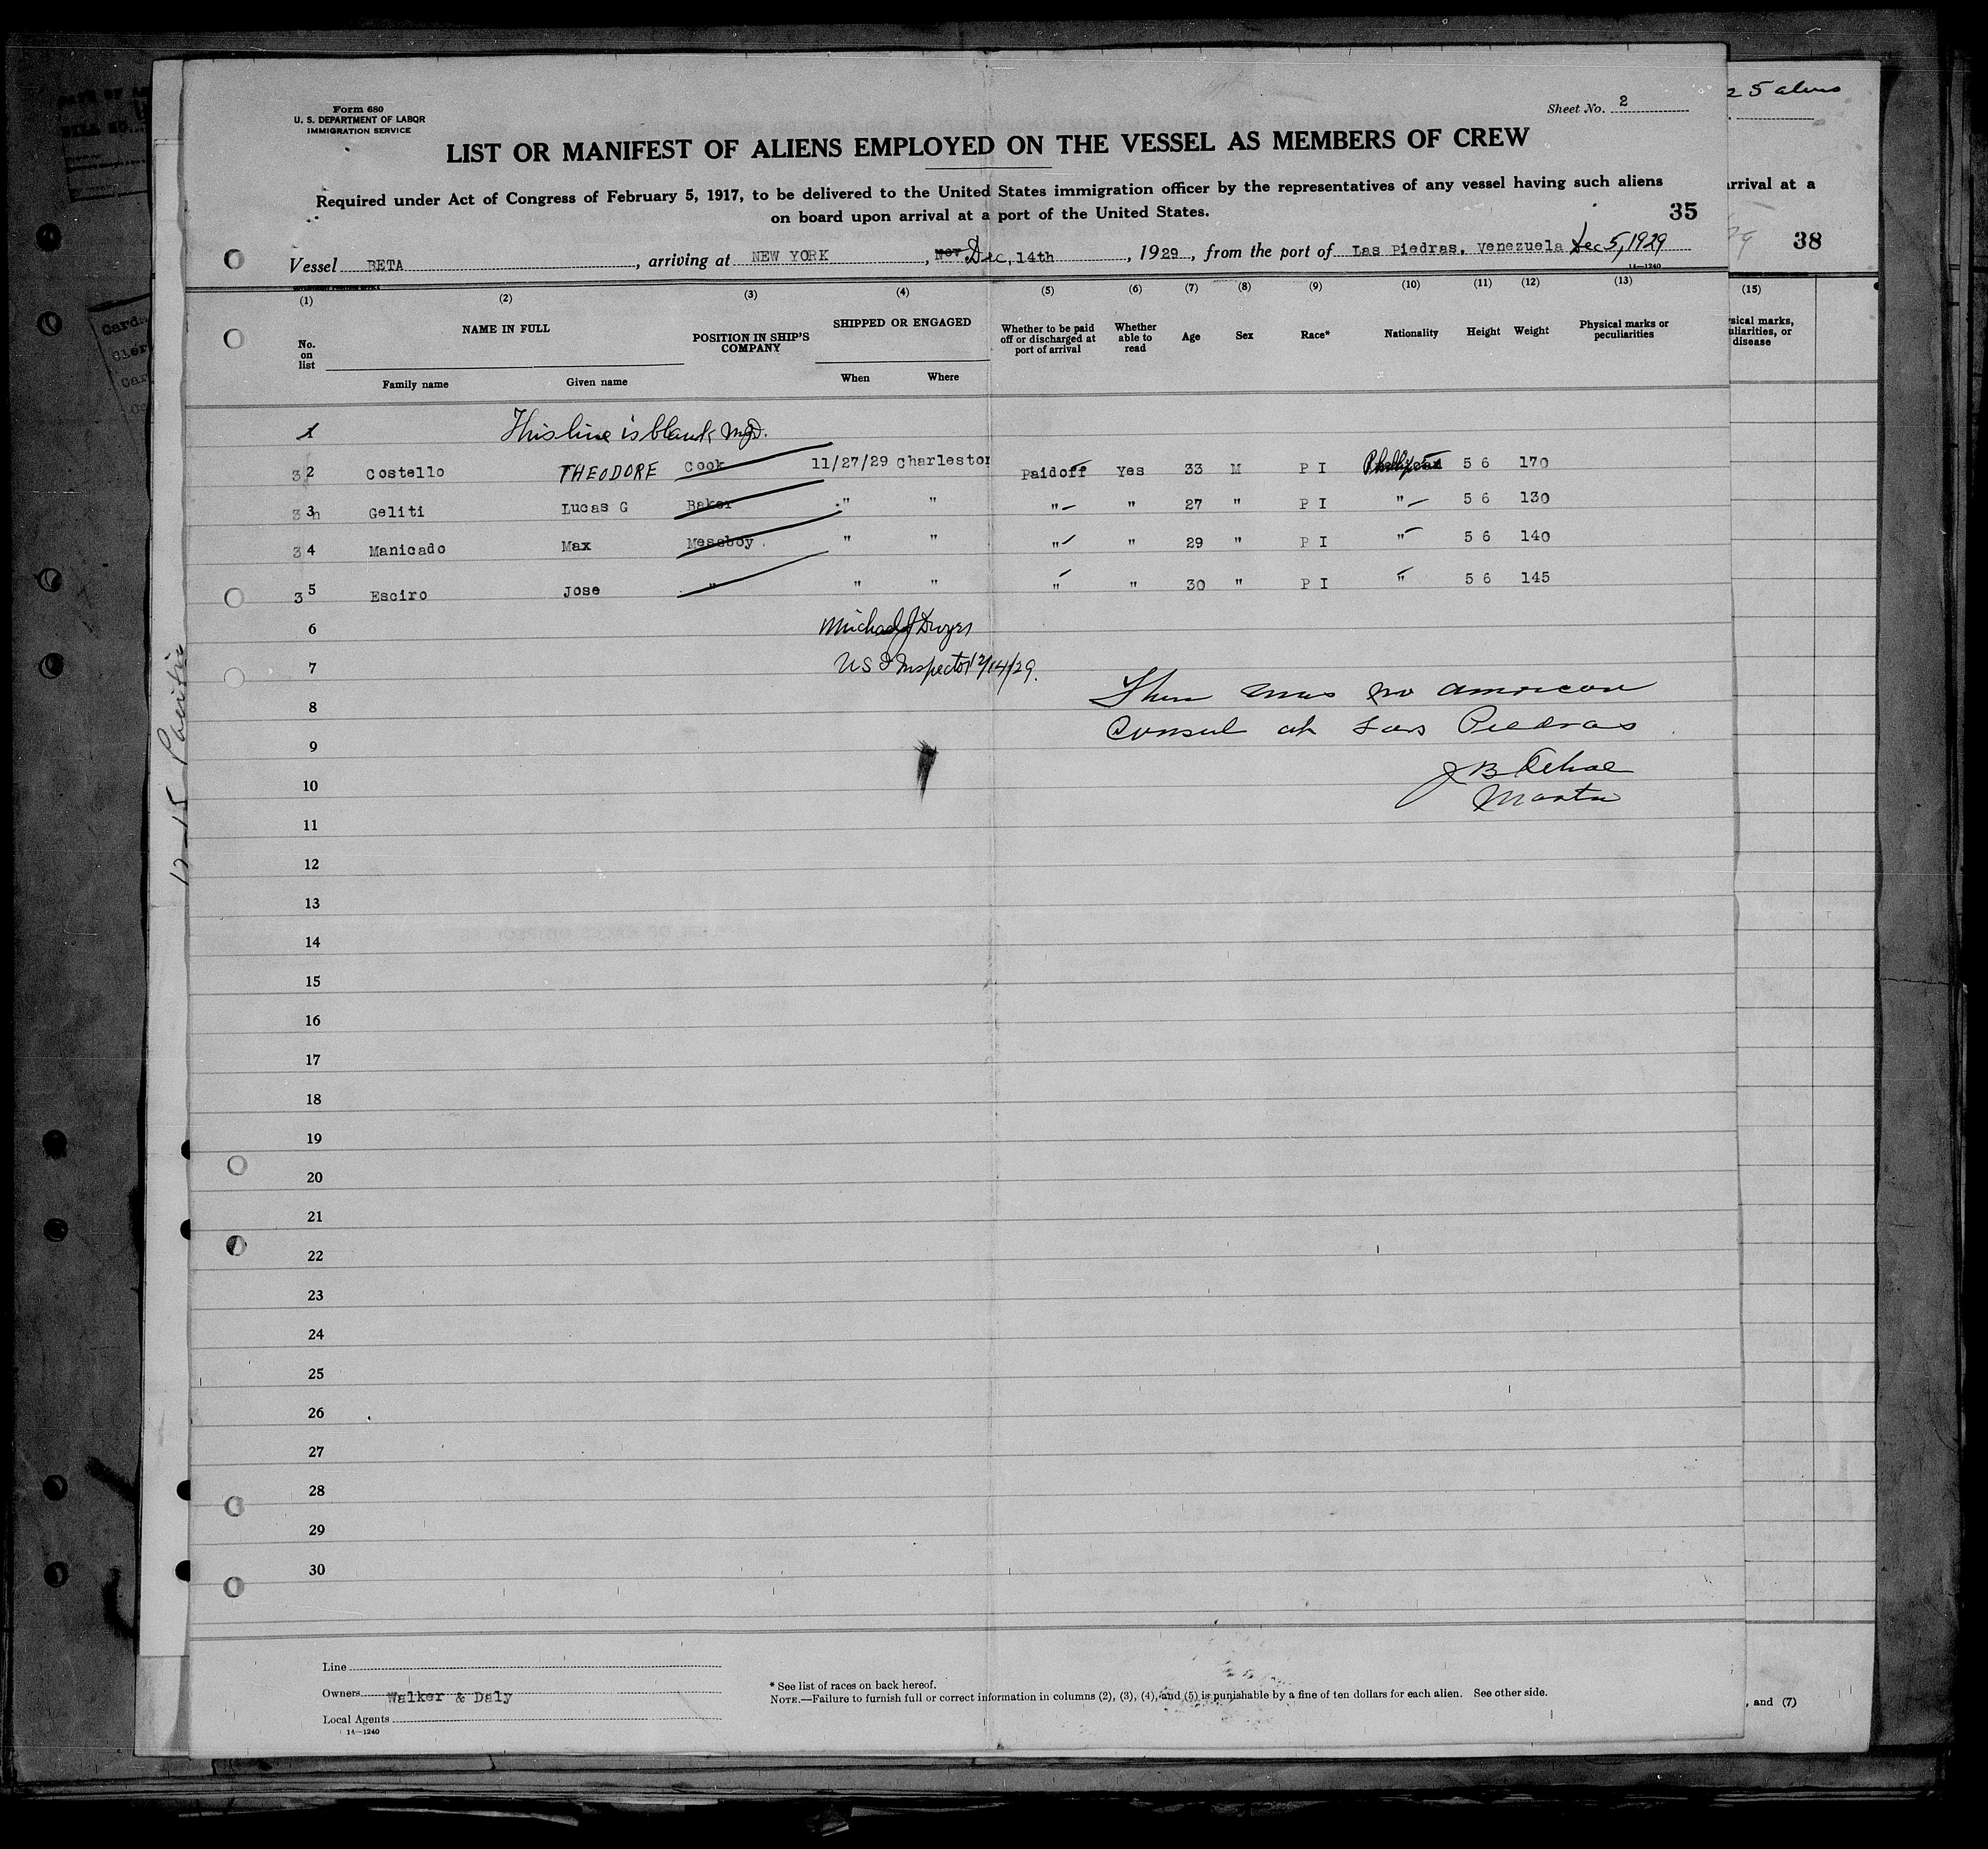 Form 680
U. S. DEPARTMENT OF LABOR
IMMIGRATION SERVICE
Sheet No. 2
LIST OR MANIFEST OF ALIENS EMPLOYED ON THE VESSEL AS MEMBERS OF CREW
Required under Act of Congress of February 5, 1917, to be delivered to the United States immigration officer by the representatives of any vessel having such aliens
on board upon arrival at a port of the United States.
35
Vessel BETA, arriving at NEW YORK, Nov Dec, 14th, 1929, from the port of Las Piedras, Venezuela Dec 5, 1929
14—1240
(1) (2) (3) (4) (5) (6) (7) (8) (9) (10) (11) (12) (13)
No. on list NAME IN FULL POSITION IN SHIP'S COMPANY SHIPPED OR ENGAGED Whether to be paid off or discharged at port of arrival Whether able to read Age Sex Race* Nationality Height Weight Physical marks or peculiarities
Family name Given name When Where
1 This line is blank MJD.
3 2 Costello THEODORE Cook 11/27/29 Charleston Paidoff Yes 33 M P I 5 6 170
3 3 Geliti Lucas G Baker " " " " 27 " P I " 5 6 130
3 4 Manicado Max Messboy " " " " 29 " P I " 5 6 140
3 5 Esciro Jose " " " " " 30 " P I " 5 6 145
6 Michael J Dwyer
7 US I Inspector 12/14/29.
There was no American
8
Consul at Las Piedras
9
J B
10
Master
11
12
13
14
15
16
17
18
19
20
21
22
23
24
25
26
27
28
29
30
Line
Owners Walker & Daly
Local Agents
14—1240
* See list of races on back hereof.
NOTE.—Failure to furnish full or correct information in columns (2), (3), (4), and (5) is punishable by a fine of ten dollars for each alien. See other side.
12-15
arrival at a
38
(15)
disease
, and (7)